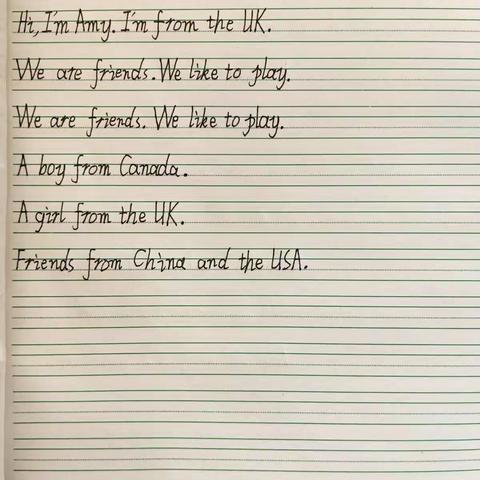 Hi, I'm Amy. I'm from the UK.
We are friends. We like to play.
We are friends. We like to play.
A boy from Canada.
A girl from the UK.
Friends from China and the USA.